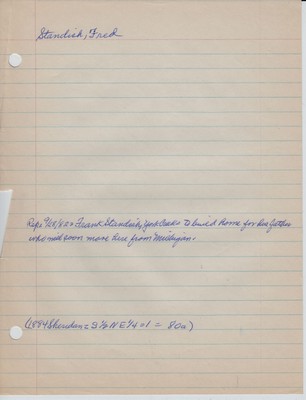 Standish, Fred
Rep: 9/28/82 = Frank Standish, York Creek to build home for his father
who will soon move here from Michigan.
(1884 Sheridan = S ½ N E ¼ = 1 = 80a)